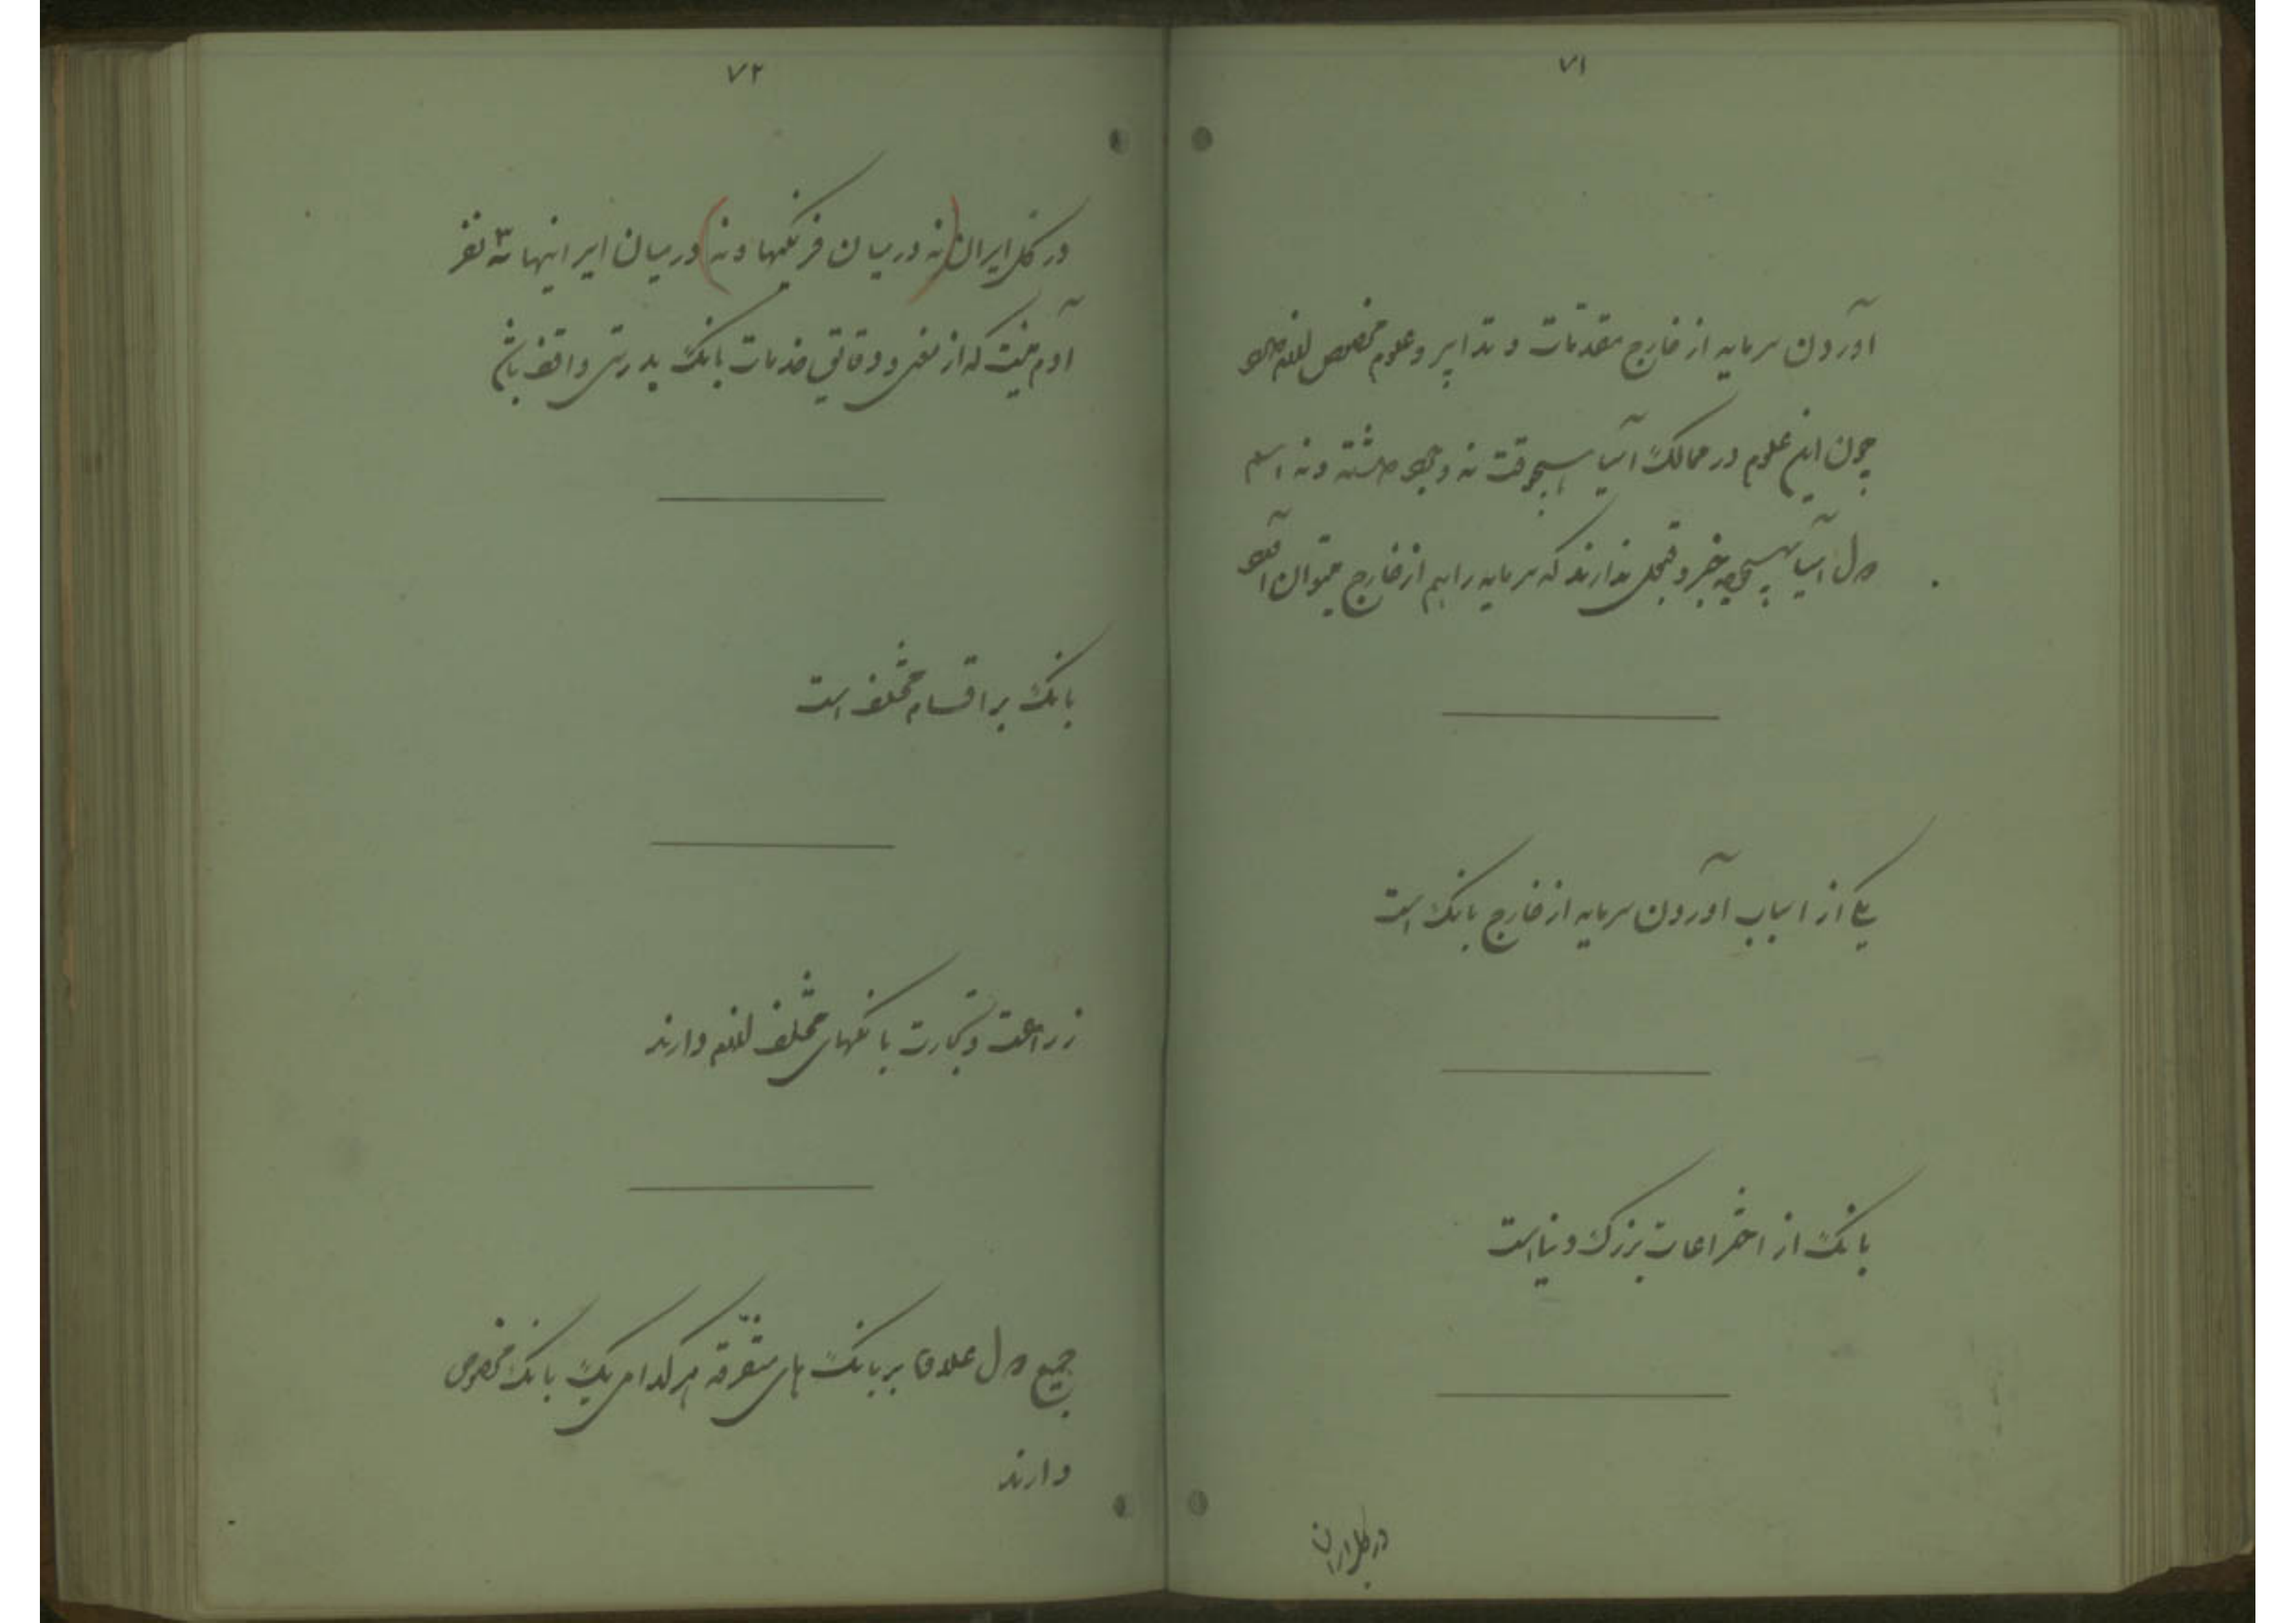 ۷۱
آوردن سرمایه از خارج مقدمات و تدابیر و علوم مخصوص لازم دارد
چون این علوم در ممالک آسیا هیچوقت نه وجود داشته و نه اسم
دول آسیا بهیچوجه خبر و تخیلی ندارند که سرمایه را هم از خارج میتوان آورد
یکی از اسباب آوردن سرمایه از خارج بانک است
بانک از اختراعات بزرگ دنیا است
در کل ایران
۷۲
در کل ایران (نه در میان فرنگیها و نه) در میان ایرانیها سه نفر
آدم نیست که از معنی و دقایق خدمات بانک بدرستی واقف باشد
بانک بر اقسام مختلف است
زراعت و تجارت بانکهای مختلف لازم دارند
جمیع دول علاوه بر بانک های متفرقه هر کدام یک بانک مخصوص
دارند